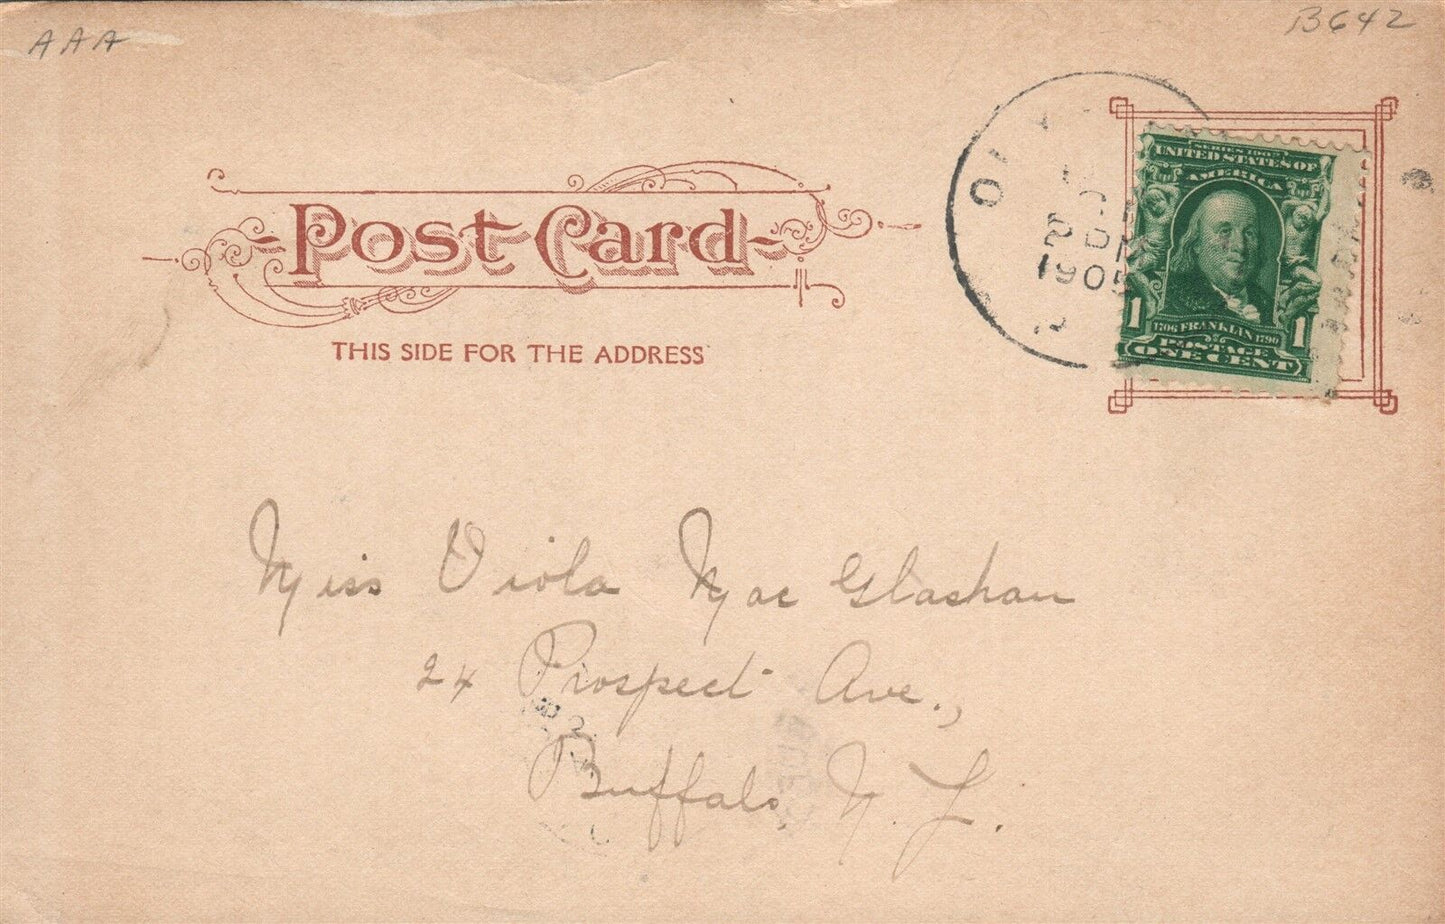 AAA
B642
Post Card
THIS SIDE FOR THE ADDRESS
2 PM
1905
SERIES 1902
UNITED STATES OF
AMERICA
1706 FRANKLIN 1790
1 POSTAGE 1
ONE CENT
Miss Viola Mac Glashan
24 Prospect Ave.,
Buffalo, N. Y.